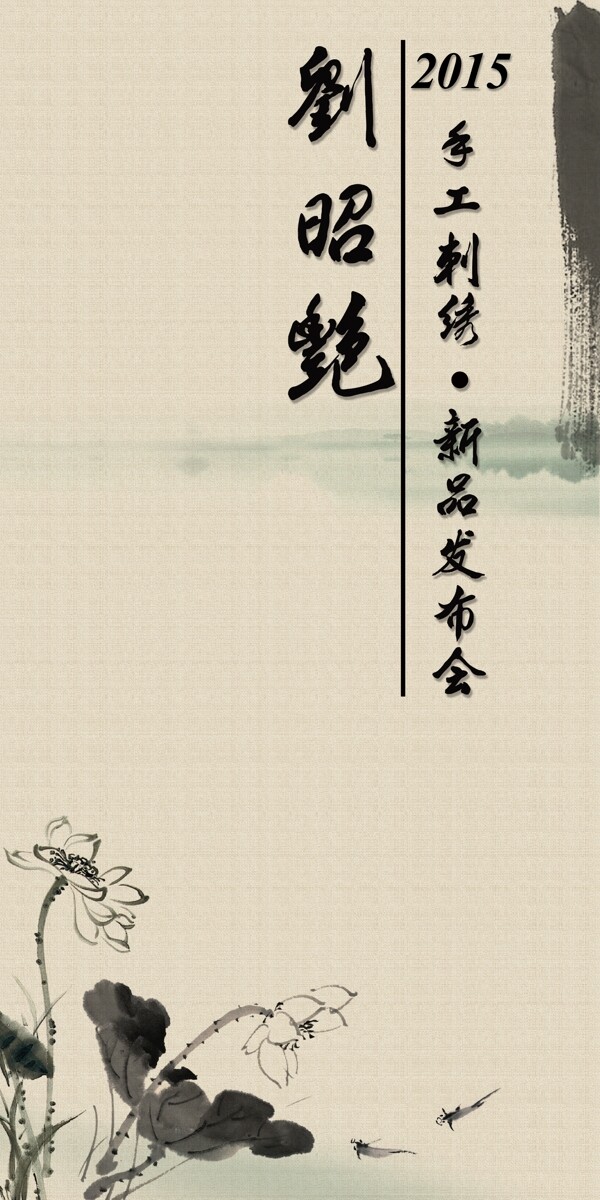 2015
手工刺绣•新品发布会
劉昭艷